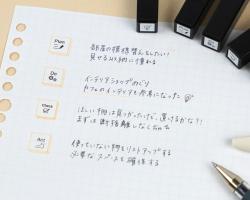 Plan
部屋の模様替えをしたい!
見せる収納に憧れる
Do
インテリアショップめぐり
カフェのインテリアも参考になった
Check
ほしい物は見つかったけど、置けるかな??
まずは断捨離しなくちゃ
Act
使っていない物をリストアップする
必要なスペースを確保する